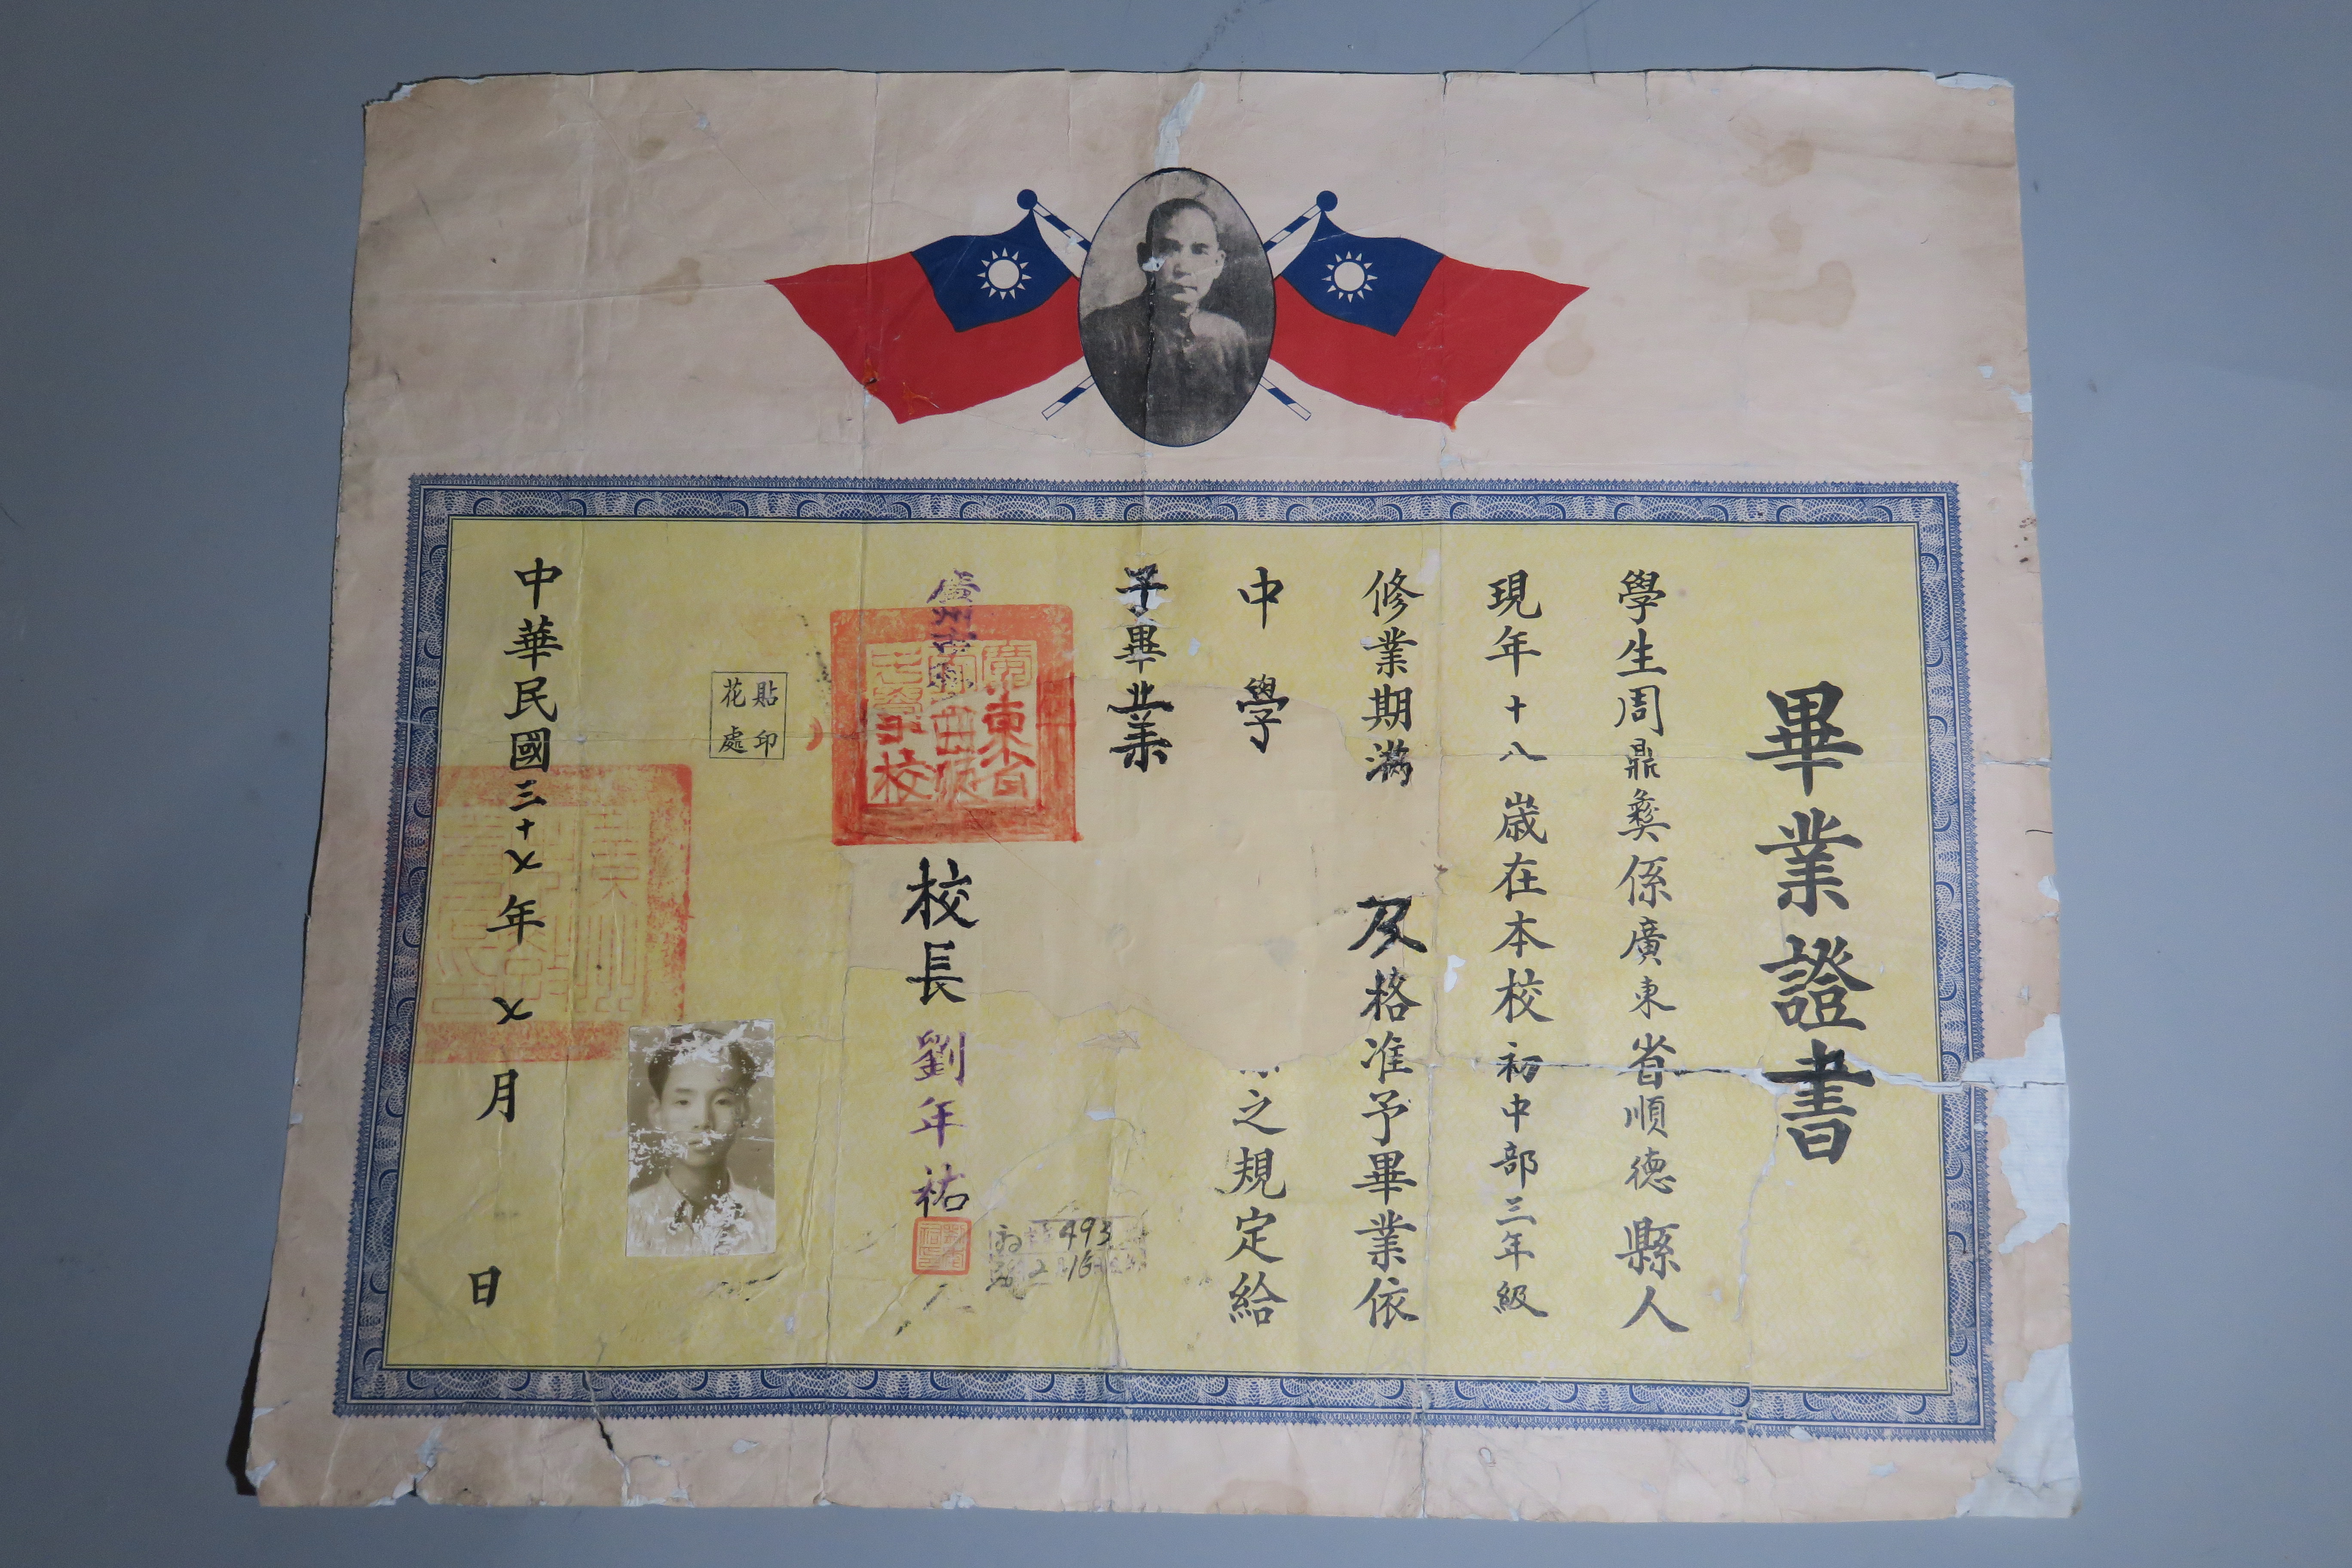 畢業證書
學生周鼎彜係廣東省順德縣人
現年十八歲在本校初中部三年級
修業期滿 及格准予畢業依
中學 之規定給
予畢業
廣州市
廣東省 校
校長劉年祐
493
貼印
花處
中華民國三十乂年乂月 日